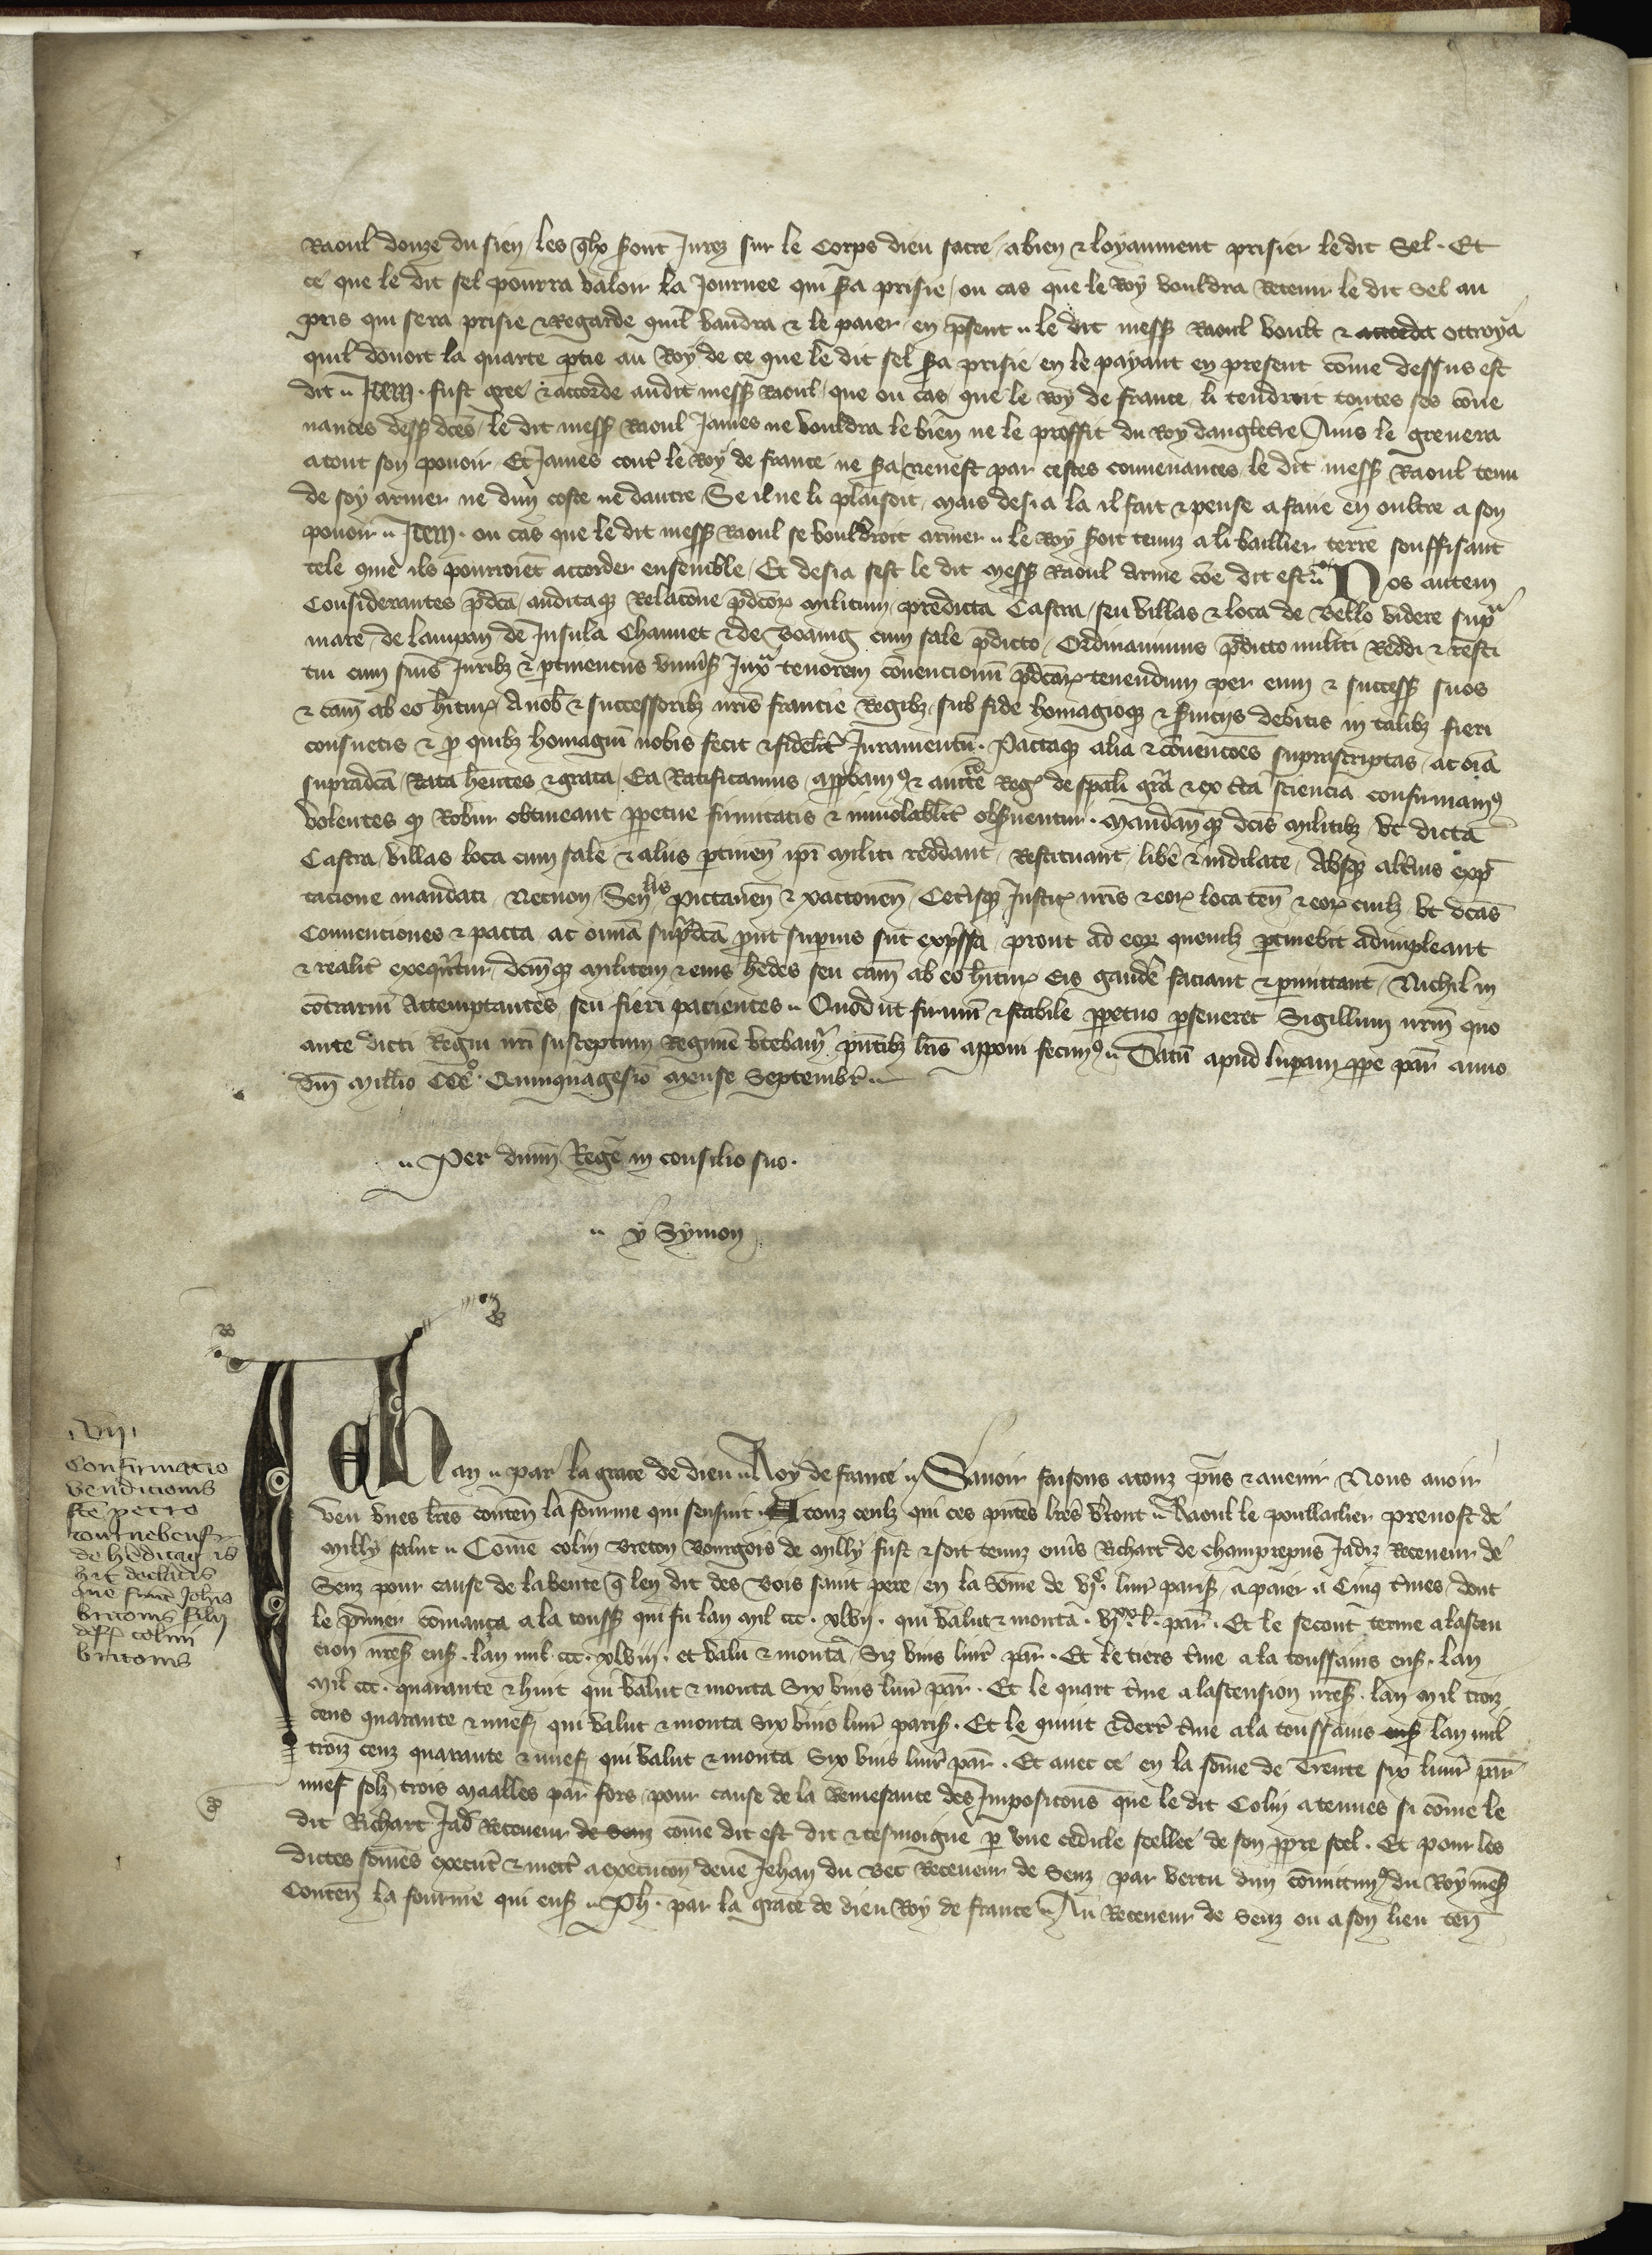 Raoul douze du sien / les qlx sont Jurez sur le Corps dieu sacre / a bien & loyaument prisier le dit Sel. Et
ce que le dit sel pourra valoir la Journee qui sa prisie / ou cas que le Roy vouldra Retenir le dit Sel au
pris qui sera prisie & Regarde quil vaudra & le paier en psent. le dit mess Raoul voult & accorda ottroya
quil donoit la quarte ptie au Roy de ce que le dit sel sa prisie en le payant en present cōme dessus est
dit. Item. fust gree & accorde audit mess Raoul que ou cas que le Roy de france li tendroit toutes ses cōue
nances dess dces / le dit mess Raoul James ne vouldra le bien ne le proffit du Roy dangleterre Ains le greuera
a tout son pouoir Et James contr le Roy de france ne sa / ne nest par cestes conuenances le dit mess Raoul tenu
de soy armer ne dun coste ne dautre / Se il ne li plaisoit / Mais desia la il fait & pense a faire en oultre a son
pouoir. Item. ou cas que le dit mess Raoul se vouldroit armer. le Roy soit tenuz a li baillier terre souffisant
tele que ilz pourroiēt accorder ensemble / Et desia sest le dit mess Raoul Arme cōe dit est. Nos autem
Considerantes pdcā / auditaque Relacōne pdcōrz militum / predicta Castra / seu villas & loca de Bello videre supra
mare de lampan de Insula Chauuet & de Boaing cum sale pdicto / Ordinauimus pdicto militi Reddi & resti
tui cum suis Juribz & ptinenciis vniuss Juxa tenorem cōuencionū pdcārz tenendum per eum & success suos
& cam ab eo hiturz A nob & successoribz nris francie Regibz / sub fide homagioque & seruiciis debitis in talibz fieri
consuetis & p quibz homagiū nobis fecit & fidelitr Juramentū. Pactaque alia & cōuencōes suprascriptas / ac oīa
supradcā / Rata hentes & grata / Ea Ratificamus / appbamus & auctte Reg de spāli grā & ex cta sciencia confirmamus
Volentes qp Robur obtineant ppetue firmitatis & inuiolablitr obseruentur. Mandantesque dcis militibz vt dicta
Castra / villas loca cum sale & aliis ptinen ipi militi reddant / Restituant / libe & indilate / Absque altius exp
tacione mandati / Necnon / Senllis Pictauen & xactonen / Cetisque Justic nris & eorz loca ten & eorz cuilz vt dcas
Conuenciones & pacta ac omia supdcā put superius sūt expssa / prout ad eorz quemlz ptinebit adimpleant
& realitr exequntur / dcmque militem & eius hedes seu cam ab eo hiturz eis gaude faciant & pmittant / Nichil in
cōtrariū Attemptantes seu fieri pacientes. Quod ut firmū & stabile ppetuo pseueret Sigillum nrm quo
ante dicti Regni nri susceptum Regimē vtebamr pntibz lris apponi fecimus. Datū apud luparam ppe par anno
dm millio CCCo. Quinquagesio Mense Septembr.
Per dnm Regē in consilio suo.
y Symon
Vii
Confirmatio
venditionis
fce petro
tournebeuf
de
hic declatis
que funt Johis
britonis filii
def colini
britonis
Jehan. par la grace de dieu. Roy de france. Sauoir faisons a touz pns & auenir Nous auoir
veu vnes lres conten la fourme qui sensuit. A touz ceulz qui ces pntes lres vront. Raoul le poullailier preuost de
Milly salut. Cōme colin breton bourgois de Milly fust & soit tenuz enuis Richart de champrepus Jadiz Receueur de
Senz pour cause de la vente q len dit des bois saint pere / en la Sōme de vjc. liur paris / a paier a Cinq tmes / dont
le pmier cōmanca a la touss qui fu lan mil ccc. xlvij. qui valut & monta. vjxx. l. par. Et le second terme a lascen
cion nres ens. lan mil ccc. xlviij. et valu & monta Six vins liur par. Et le tiers tme a la toussains ens. lan
Mil ccc. quarante & huit qui valut & monta Six vins liur par. Et le quart tme a lascension nres. lan Mil troiz
cens quarante & nuef / qui valut & monta Six vins liur paris. Et le quint & derr tme a la toussains ens lan mil
troiz cenz quarante & nuef qui valut & monta Six vins liur par. Et auec ce en la sōme de Trente six liur par
nuef solz trois maailles par fors / pour cause de la des Imposicons que le dit Colin a tenues si cōme le
dit Richart Jad Receueur de Senz cōme dit est dit & tesmoigne p vne cedule seellee de son ppre seel. Et pour les
dictes sōmes execut & mectr a execucon deue Jehan du Bec Receueur de Senz / par vertu dun cōmitimus du Roy mess
Conten la fourme qui ens. Ph. par la grace de dieu Roy de france. Au Receueur de Senz ou a son lieu ten